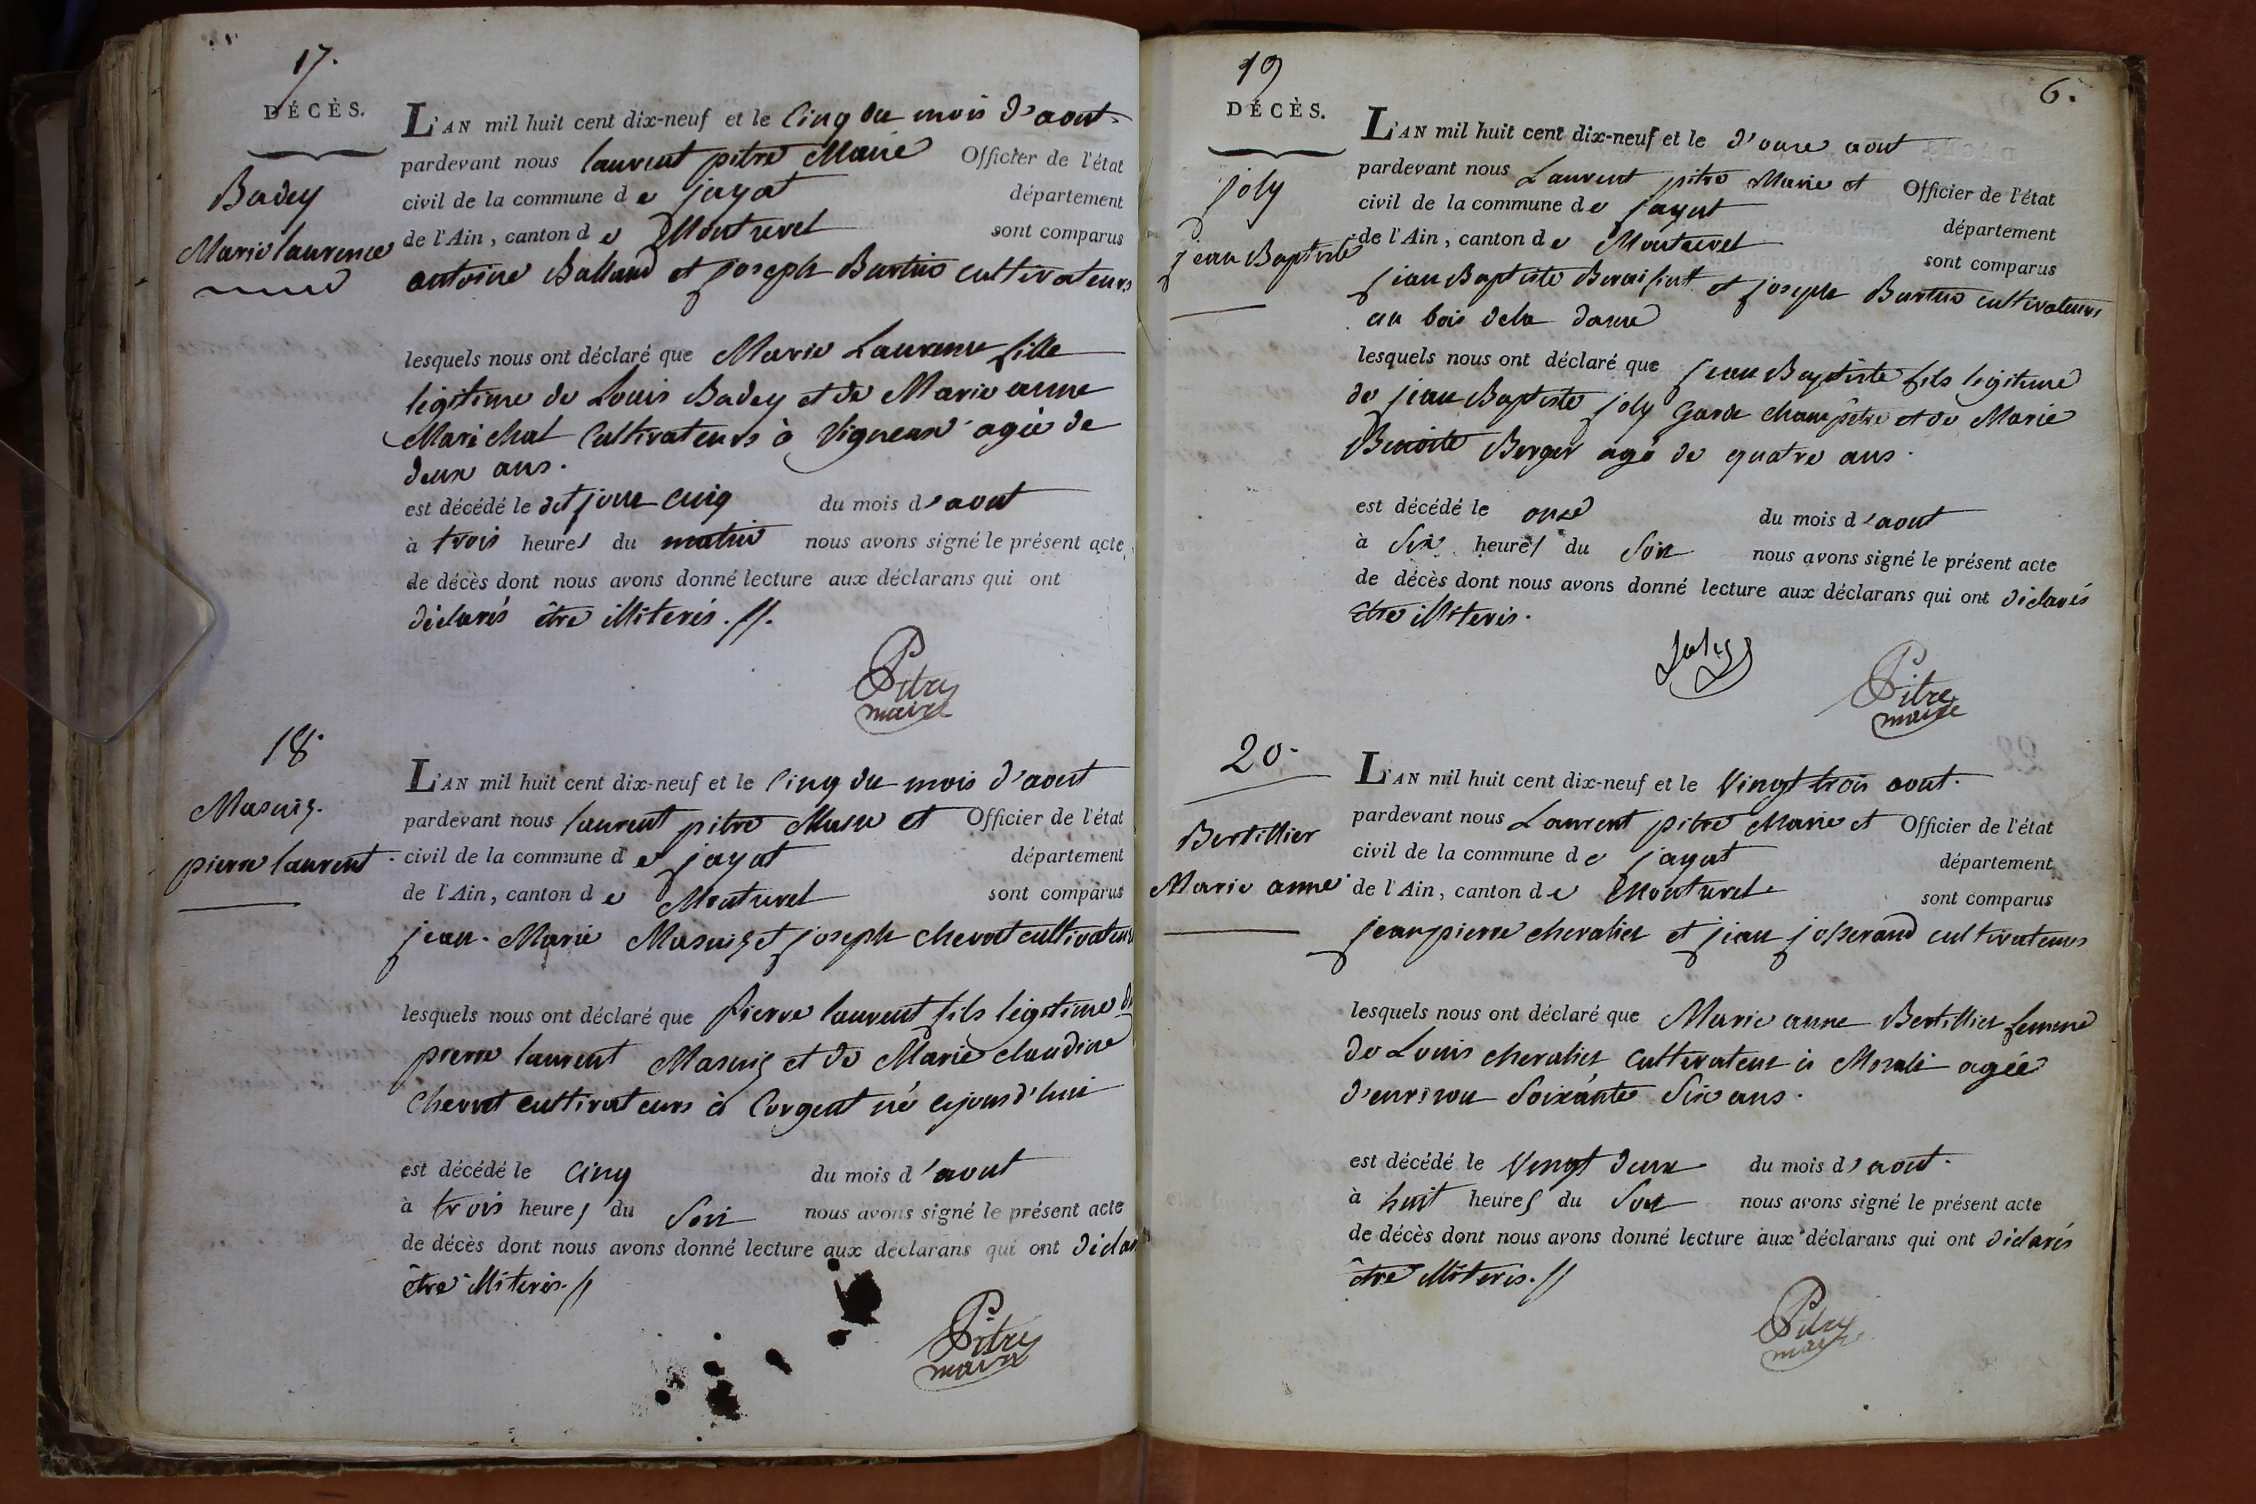 17.
DÉCÈS.
Badey
Marie laurence
L'AN mil huit cent dix-neuf et le Cinq du mois d'aout
pardevant nous laurent pitre Maire Officier de l'état
civil de la commune de jayat département
de l'Ain, canton de Montrevel sont comparus
antoine Balland et joseph Bartus cultivateurs
lesquels nous ont déclaré que Marie Laurence fille
légitime de Louis Badey et de Marie anne
Maréchal Cultivateurs à Vigneux agée de
deux ans.
est décédé le dit jour cinq du mois d'aout
à trois heures du matin nous avons signé le présent acte
de décès dont nous avons donné lecture aux déclarans qui ont
déclarés être illiterés.
Pitre
maire
18.
Masuis.
pierre laurent
L'AN mil huit cent dix-neuf et le Cinq du mois d'aout
pardevant nous laurent pitre Maire et Officier de l'état
civil de la commune de jayat département
de l'Ain, canton de Montrevel sont comparus
jean Marie Masuis et joseph chevrat cultivateurs
lesquels nous ont déclaré que Pierre laurent fils légitime de
pierre laurent Masuis et de Marie claudine
chevrat cultivateurs à Corgeat né cejourd'hui
est décédé le cinq du mois d'aout
à trois heures du Soir nous avons signé le présent acte
de décès dont nous avons donné lecture aux déclarans qui ont déclar
être illiterés.
Pitre
maire
6.
19
DÉCÈS.
joly
jean Baptiste
L'AN mil huit cent dix-neuf et le d'ouze aout
pardevant nous Laurent pitre Maire et Officier de l'état
civil de la commune de jayat département
de l'Ain, canton de Montrevel sont comparus
jean Baptiste et joseph Bartus cultivateurs
au bois dela dame
lesquels nous ont déclaré que jean Baptiste fils légitime
de jean Baptiste joly Garde champêtre et de Marie
Benoite Berger agé de quatre ans.
est décédé le onze du mois d'aout
à Six heures du Soir nous avons signé le présent acte
de décès dont nous avons donné lecture aux déclarans qui ont déclarés
être illiterés.
Pitre
maire
20.
Bertillier
Marie anne
L'AN mil huit cent dix-neuf et le Vingt trois aout.
pardevant nous Laurent pitre Maire et Officier de l'état
civil de la commune de jayat département
de l'Ain, canton de Montrevel sont comparus
jean pierre chevalier et jean josserand cultivateurs
lesquels nous ont déclaré que Marie anne Bertillier femme
de Louis chevalier cultivateur à agée
d'environ Soixante Six ans.
est décédé le Vingt deux du mois d'aout.
à huit heures du Soir nous avons signé le présent acte
de décès dont nous avons donné lecture aux déclarans qui ont déclarés
être illiterés.
Pitre
maire